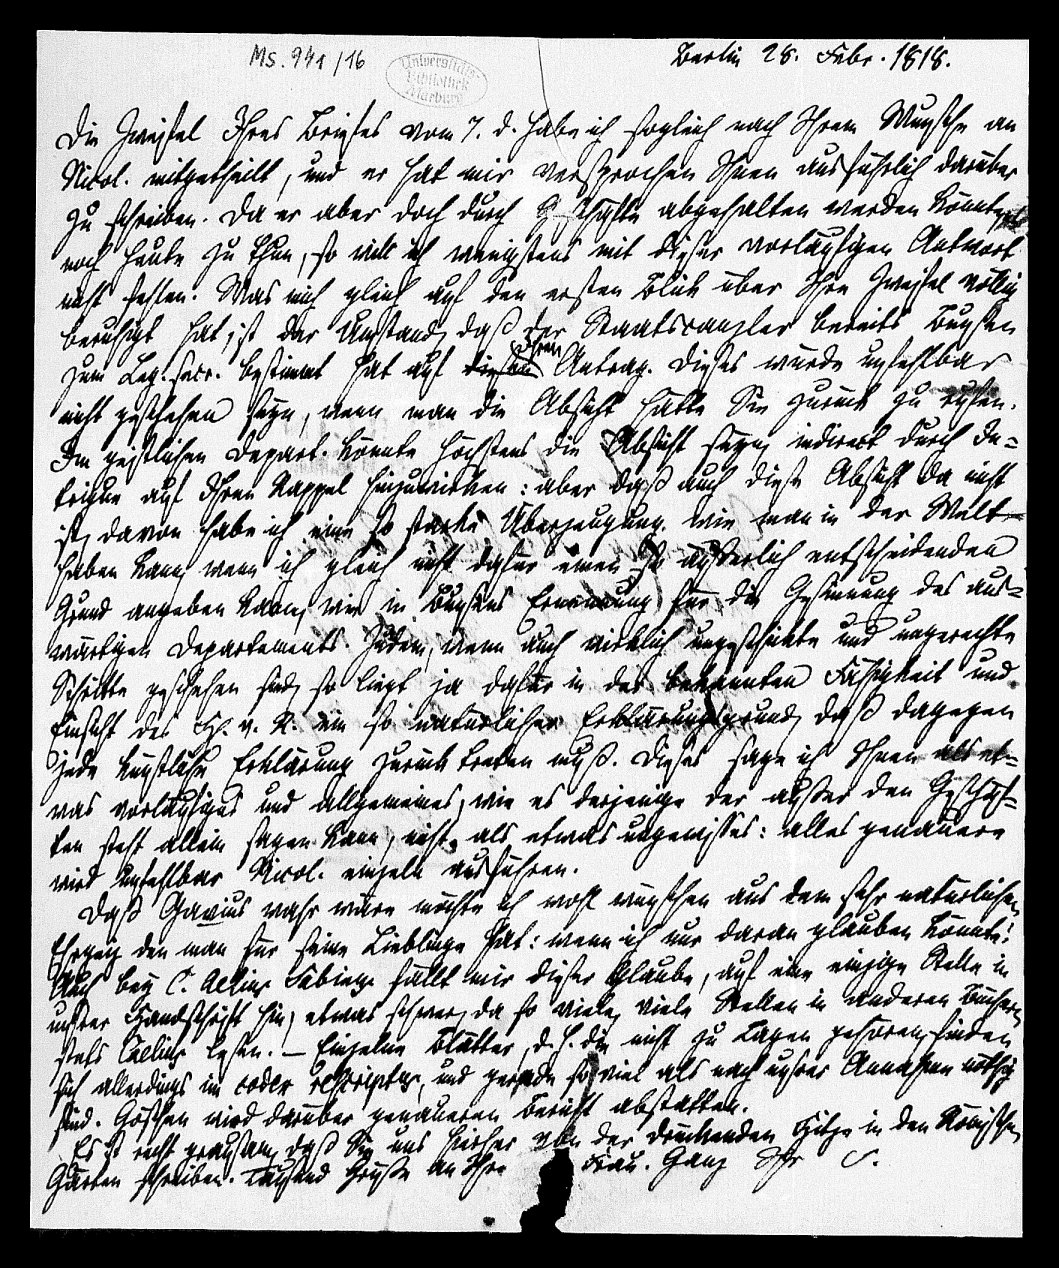 Ms. 941/16
Universitäts-
Bibliothek
Marburg
Berlin 28. Febr. 1818.
Die Zweifel Ihres Briefes vom 7. d. habe ich sogleich nach Ihrem Wunsche an
Nicol. mitgetheilt, und er hat mir versprochen Ihnen ausführlich darüber
zu schreiben. Da er aber doch durch Geschäfte abgehalten werden könnte, es
noch heute zu thun, so will ich wenigstens mit dieser vorläufigen Antwort
nicht fehlen. Was mich gleich auf den ersten Blick über Ihre Zweifel völlig
beruhigt hat, ist der Umstand, daß der Staatscanzler bereits Bunsen
zum Leg. secr. bestimmt hat auf Ihren Antrag. Dieses würde unfehlbar
nicht geschehen seyn, wenn man die Absicht hätte Sie zurück zu rufen.
Im geistlichen Depart. könnte höchstens die Absicht seyn, indirect durch In-
trigue auf Ihren Rappel hinzuwirken: aber daß auch diese Absicht da nicht
ist, davon habe ich eine so starke Überzeugung, wie man in der Welt
haben kann, wenn ich gleich nicht dafür einen so äußerlich entscheidenden
Grund angeben kann, wie in Bunsens Ernennung für die Gesinnung des aus-
wärtigen Departements. Zudem, wenn auch wirklich ungeschickte und ungerechte
Schritte geschehen sind, so liegt ja dafür in der bekannten Fähigkeit und
Einsicht des H. v. R. ein so natürlicher Erklärungsgrund, daß dagegen
jede künstliche Erklärung zurück treten muß. Dieses sage ich Ihnen als et-
was vorläufiges und allgemeines, wie es derjenige der außer den Geschäf-
ten steht allein sagen kann, nicht als etwas ungewisses: alles genauere
wird unfehlbar Nicol. einzeln ausführen.
Daß Gavius wahr wäre möchte ich wohl wünschen aus dem sehr natürlichen
Ehrgeiz den man für seine Lieblinge hat: wenn ich nur daran glauben könnte!
Auch bey C. Aelius Sabinus fällt mir dieser Glaube, auf eine einzige Stelle in
unsrer Handschrift hin, etwas schwer, da so viele, viele Stellen in anderen Büchern
stets Caelius lesen. – Einzelne Blätter, d. h. die nicht zu Lagen gehören, finden
sich allerdings im codex rescriptus, und gerade so viel als nach unsrer Annahme nöthig
sind. Göschen wird darüber genaueren Bericht abstatten.
Es ist recht grausam, daß Sie uns hierher von der drückenden Hitze in den Römischen
Gärten schreiben. Tausend Grüße an Ihre Frau. Ganz Ihr S.